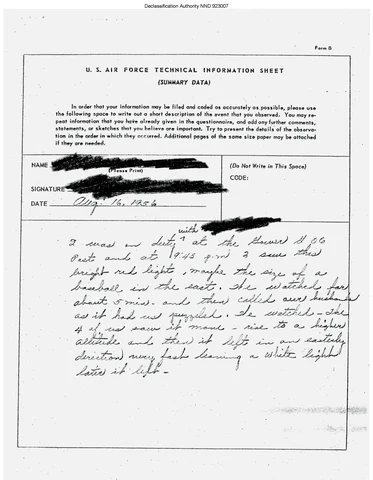 Declassification Authority NND 923007
Form B
U. S. AIR FORCE TECHNICAL INFORMATION SHEET
(SUMMARY DATA)
In order that your information may be filed and coded as accurately as possible, please use
the following space to write out a short description of the event that you observed. You may re-
peat information that you have already given in the questionnaire, and add any further comments,
statements, or sketches that you believe are important. Try to present the details of the observa-
tion in the order in which they occurred. Additional pages of the same size paper may be attached
if they are needed.
NAME
(Please Print)
(Do Not Write in This Space)
CODE:
SIGNATURE
DATE Aug. 16, 1956
with
I was on duty at the G O C
Post and at 9:45 p.m I saw this
bright red light, maybe the size of a
baseball in the east. We watched for
about 5 min. and then called our husbands
as it had us puzzled. We watched - The
4 of us saw it move - rise to a higher
altitude and then it left in an easterly
direction very fast leaving a white light
later it left -